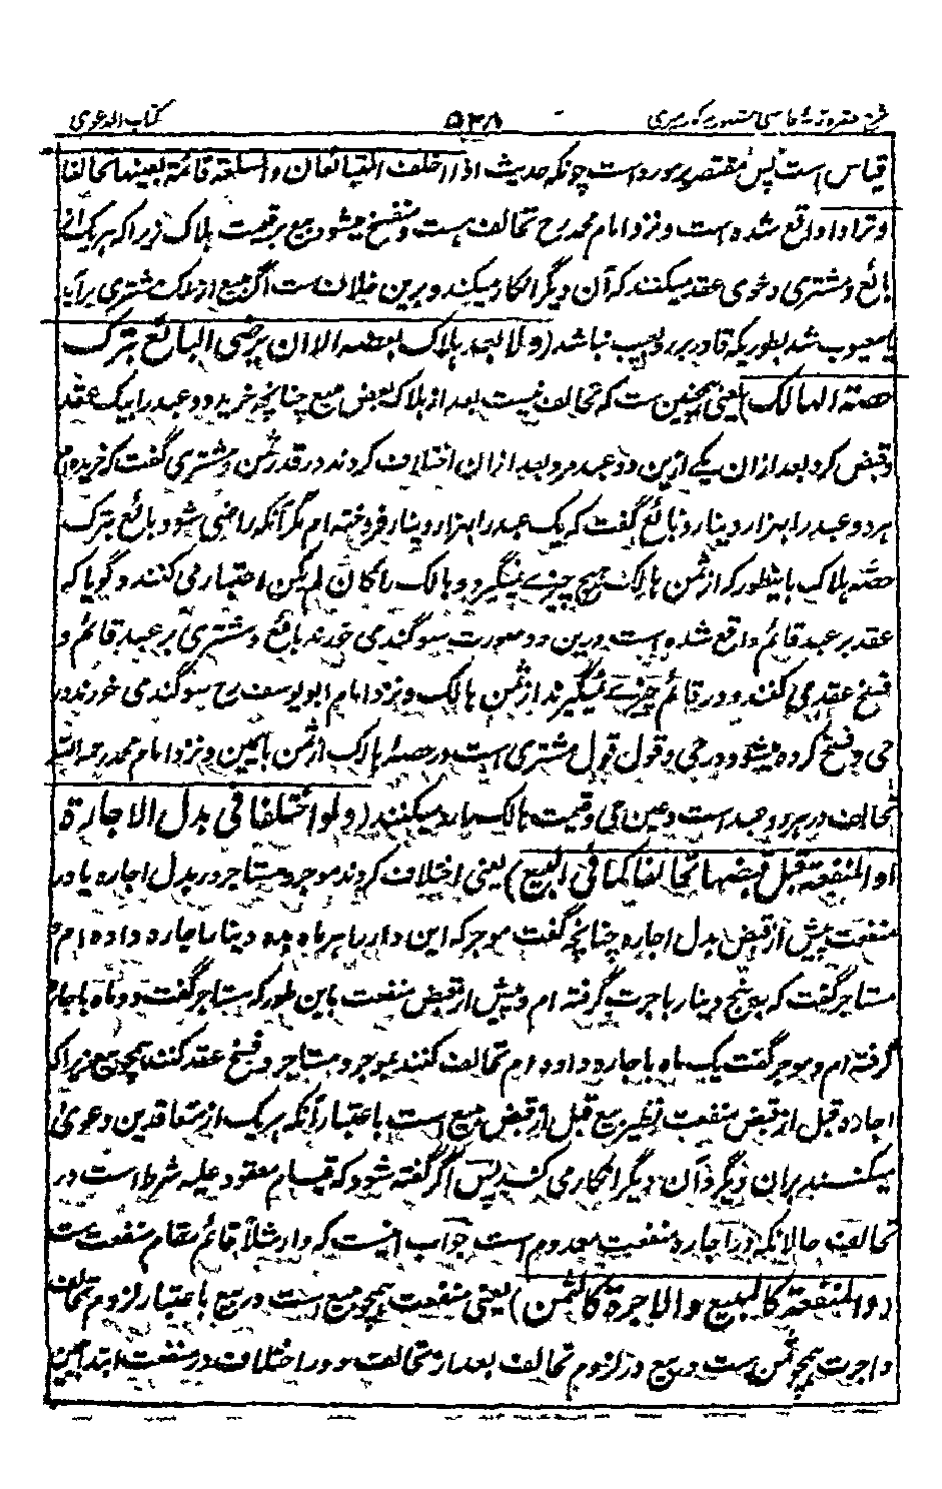 کتاب الدعوی ۵۳۸ شرح
قیاس است پس مقتصر بر مورد است چونکه حدیث اذا اختلف المتبائعان والسلعة قائمة بعینها تحالفا
وترادا واقع شده است ونزد امام محمد رح تحالف هست ومنفسخ میشود بیع بر قیمت هلاک زیرا که هر یک از
بائع ومشتری دعوی عقد میکنند که آن دیگر انکار میکند وبرین خلاف است اگر مبیع از ملک مشتری برآید
یا معیوب شد بطوریکه قادر بر رد بعیب نباشد (ولا بعد هلاک بعضه الا ان یرضی البائع بترک
حصة الهالک) یعنی همچنین است که تحالف نیست بعد از هلاک بعض مبیع چنانچه خرید دو عبد را بیک عقد
وقبض کرد بعد ازان یکے ازین دو عبد مرد بعد ازان اختلاف کردند در قدر ثمن ومشتری گفت که خریده ام
هر دو عبد را بهزار دینار وبائع گفت که یک عبد را بهزار دینار فروخته ام مگر آنکه راضی شود بائع بترک
حصه هلاک باینطور که از ثمن هالک هیچ چیزے نمیگیرد وهالک را کان لم یکن اعتبار می کنند وگویا که
عقد بر عبد قائم واقع شده است درین دو صورت سوگند می خورند بائع ومشتری بر عبد قائم و
فسخ عقد می کنند ودر قائم چیزے نمیگیرند از ثمن هالک ونزد امام ابو یوسف رح سوگند می خورند در
حی وفسخ کرده میشود در حی وقول قول مشتری است در حصهٔ هالک از ثمن بالیمین ونزد امام محمد رحمه الله
تحالف در هر دو عبد است وعین حی وقیمت هالک را رد میکنند (ولو اختلفا فی بدل الاجارة
او المنفعة قبل قبضها تحالفا کما فی البیع) یعنی اختلاف کردند موجر ومستاجر در بدل اجاره یا در
منفعت پیش از قبض بدل اجاره چنانچه گفت موجر که این دار را هر ماه بده دینار باجاره داده ام و
مستاجر گفت که به پنج دینار باجرت گرفته ام وپیش از قبض منفعت باین طور که مستاجر گفت دو ماه باجاره
گرفته ام وموجر گفت یک ماه باجاره داده ام تحالف کنند موجر ومستاجر وفسخ عقد کنند همچو بیع زیرا که
اجاره قبل از قبض منفعت نظیر بیع قبل از قبض مبیع است باعتبار آنکه هر یک از متعاقدین دعوی
میکنند بران دیگر وآن دیگر انکار می کند پس اگر گفته شود که قیام معقود علیه شرط است در
تحالف حالانکه در اجاره منفعت معدوم است جواب اینست که دار مثلاً قائم مقام منفعت است
(والمنفعة کالمبیع والاجرة کالثمن) یعنی منفعت همچو مبیع است در بیع باعتبار لزوم تحالف
واجرت همچو ثمن است در بیع در لزوم تحالف بعد از تحالف در اختلاف در منفعت ابتدا بیمین